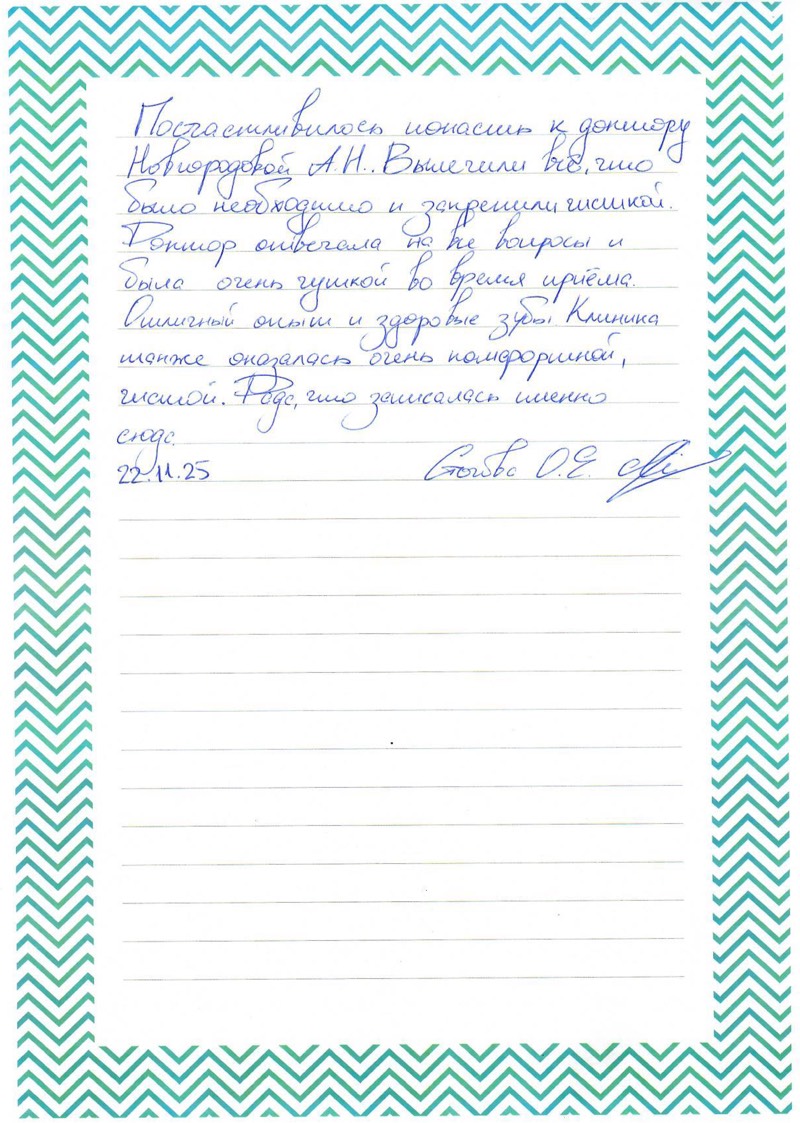 Посчастливилось попасть к доктору
Новгородовой А.Н.. Вылечили всё, что
было необходимо и закрепили чисткой.
Доктор отвечала на все вопросы и
была очень чуткой во время приёма.
Отличный опыт и здоровые зубы. Клиника
также оказалась очень комфортной,
чистой. Рада, что записалась именно
сюда.
22.11.25 О.Е.